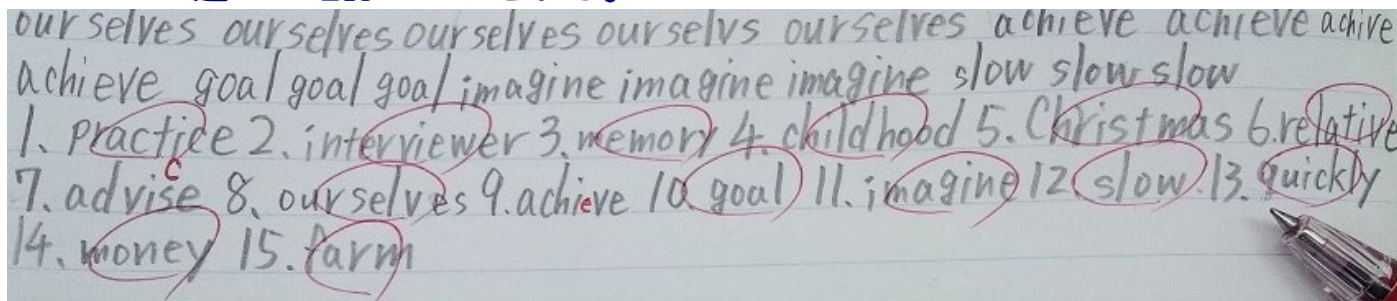 ourselves ourselves ourselves ourselvs ourselves achieve achieve achive
achieve goal goal goal imagine imagine imagine slow slow slow
1. practice 2. interviewer 3. memory 4. childhood 5. Christmas 6. relative
c
7. advise 8. ourselves 9. achieve 10. goal 11. imagine 12. slow 13. quickly
14. money 15. farm